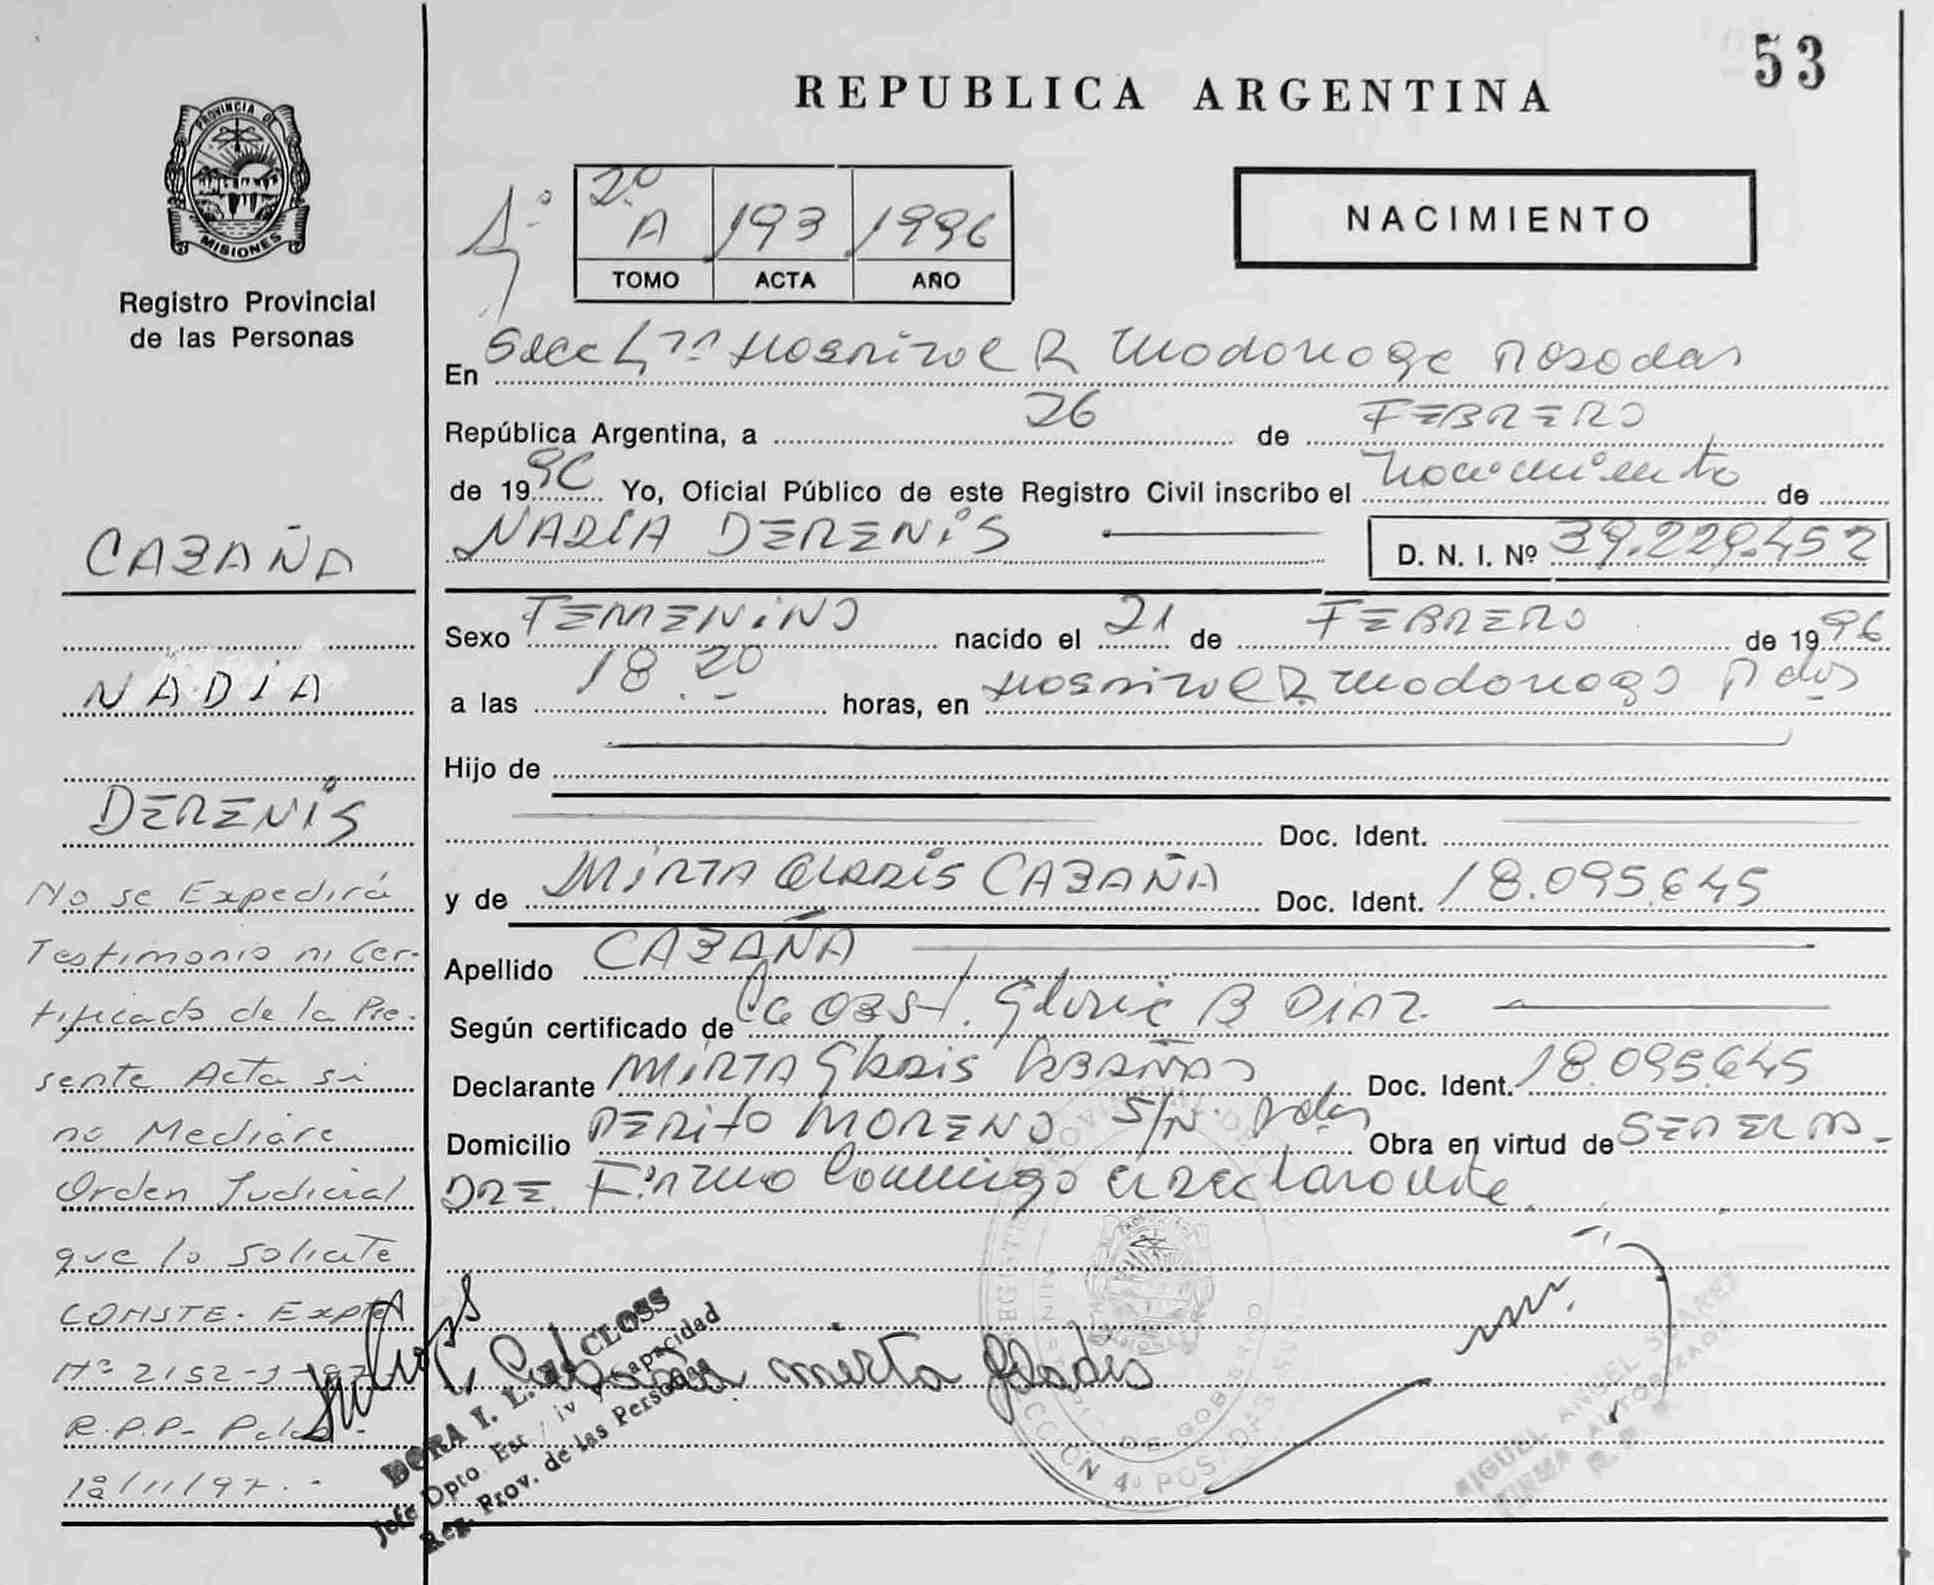 53
REPUBLICA ARGENTINA
PROVINCIA DE
MISIONES
Registro Provincial
de las Personas
2º A 193 1996
TOMO ACTA AÑO
NACIMIENTO
En Secc 4ta Hospital R Madariaga Posadas
República Argentina, a 26 de FEBRERO
de 1996 Yo, Oficial Público de este Registro Civil inscribo el nacimiento de
NADIA DERENIS D. N. I. Nº 39.229.452
Sexo FEMENINO nacido el 21 de FEBRERO de 1996
a las 18.20 horas, en Hospital R Madariaga Pdas
Hijo de
Doc. Ident.
y de MIRTA GLADIS CABAÑA Doc. Ident. 18.095.645
Apellido CABAÑA
Según certificado de La OBST. Gloria B DIAZ
Declarante MIRTA GLADIS CABAÑA Doc. Ident. 18.095.645
Domicilio PERITO MORENO S/N. Pdas Obra en virtud de SER EL PA-
DRE. Firma Conmigo el Declarante
Cabaña mirta Gladis
CABAÑA
NADIA
DERENIS
No se Expedirá
Testimonio ni Cer-
tificado de la Pre-
sente Acta si
no Mediare
Orden Judicial
que lo solicite
CONSTE. Expte
Nº 2152-J-97
R.P.P.- Pdas-
18/11/97.-
DORA I. L. CLOSS
Jefe Dpto Est Civ y Capacidad
Reg. Prov. de las Personas
SECCION 4ª POSADAS
MIGUEL ANGEL SUAREZ
FIRMA AUTORIZADA